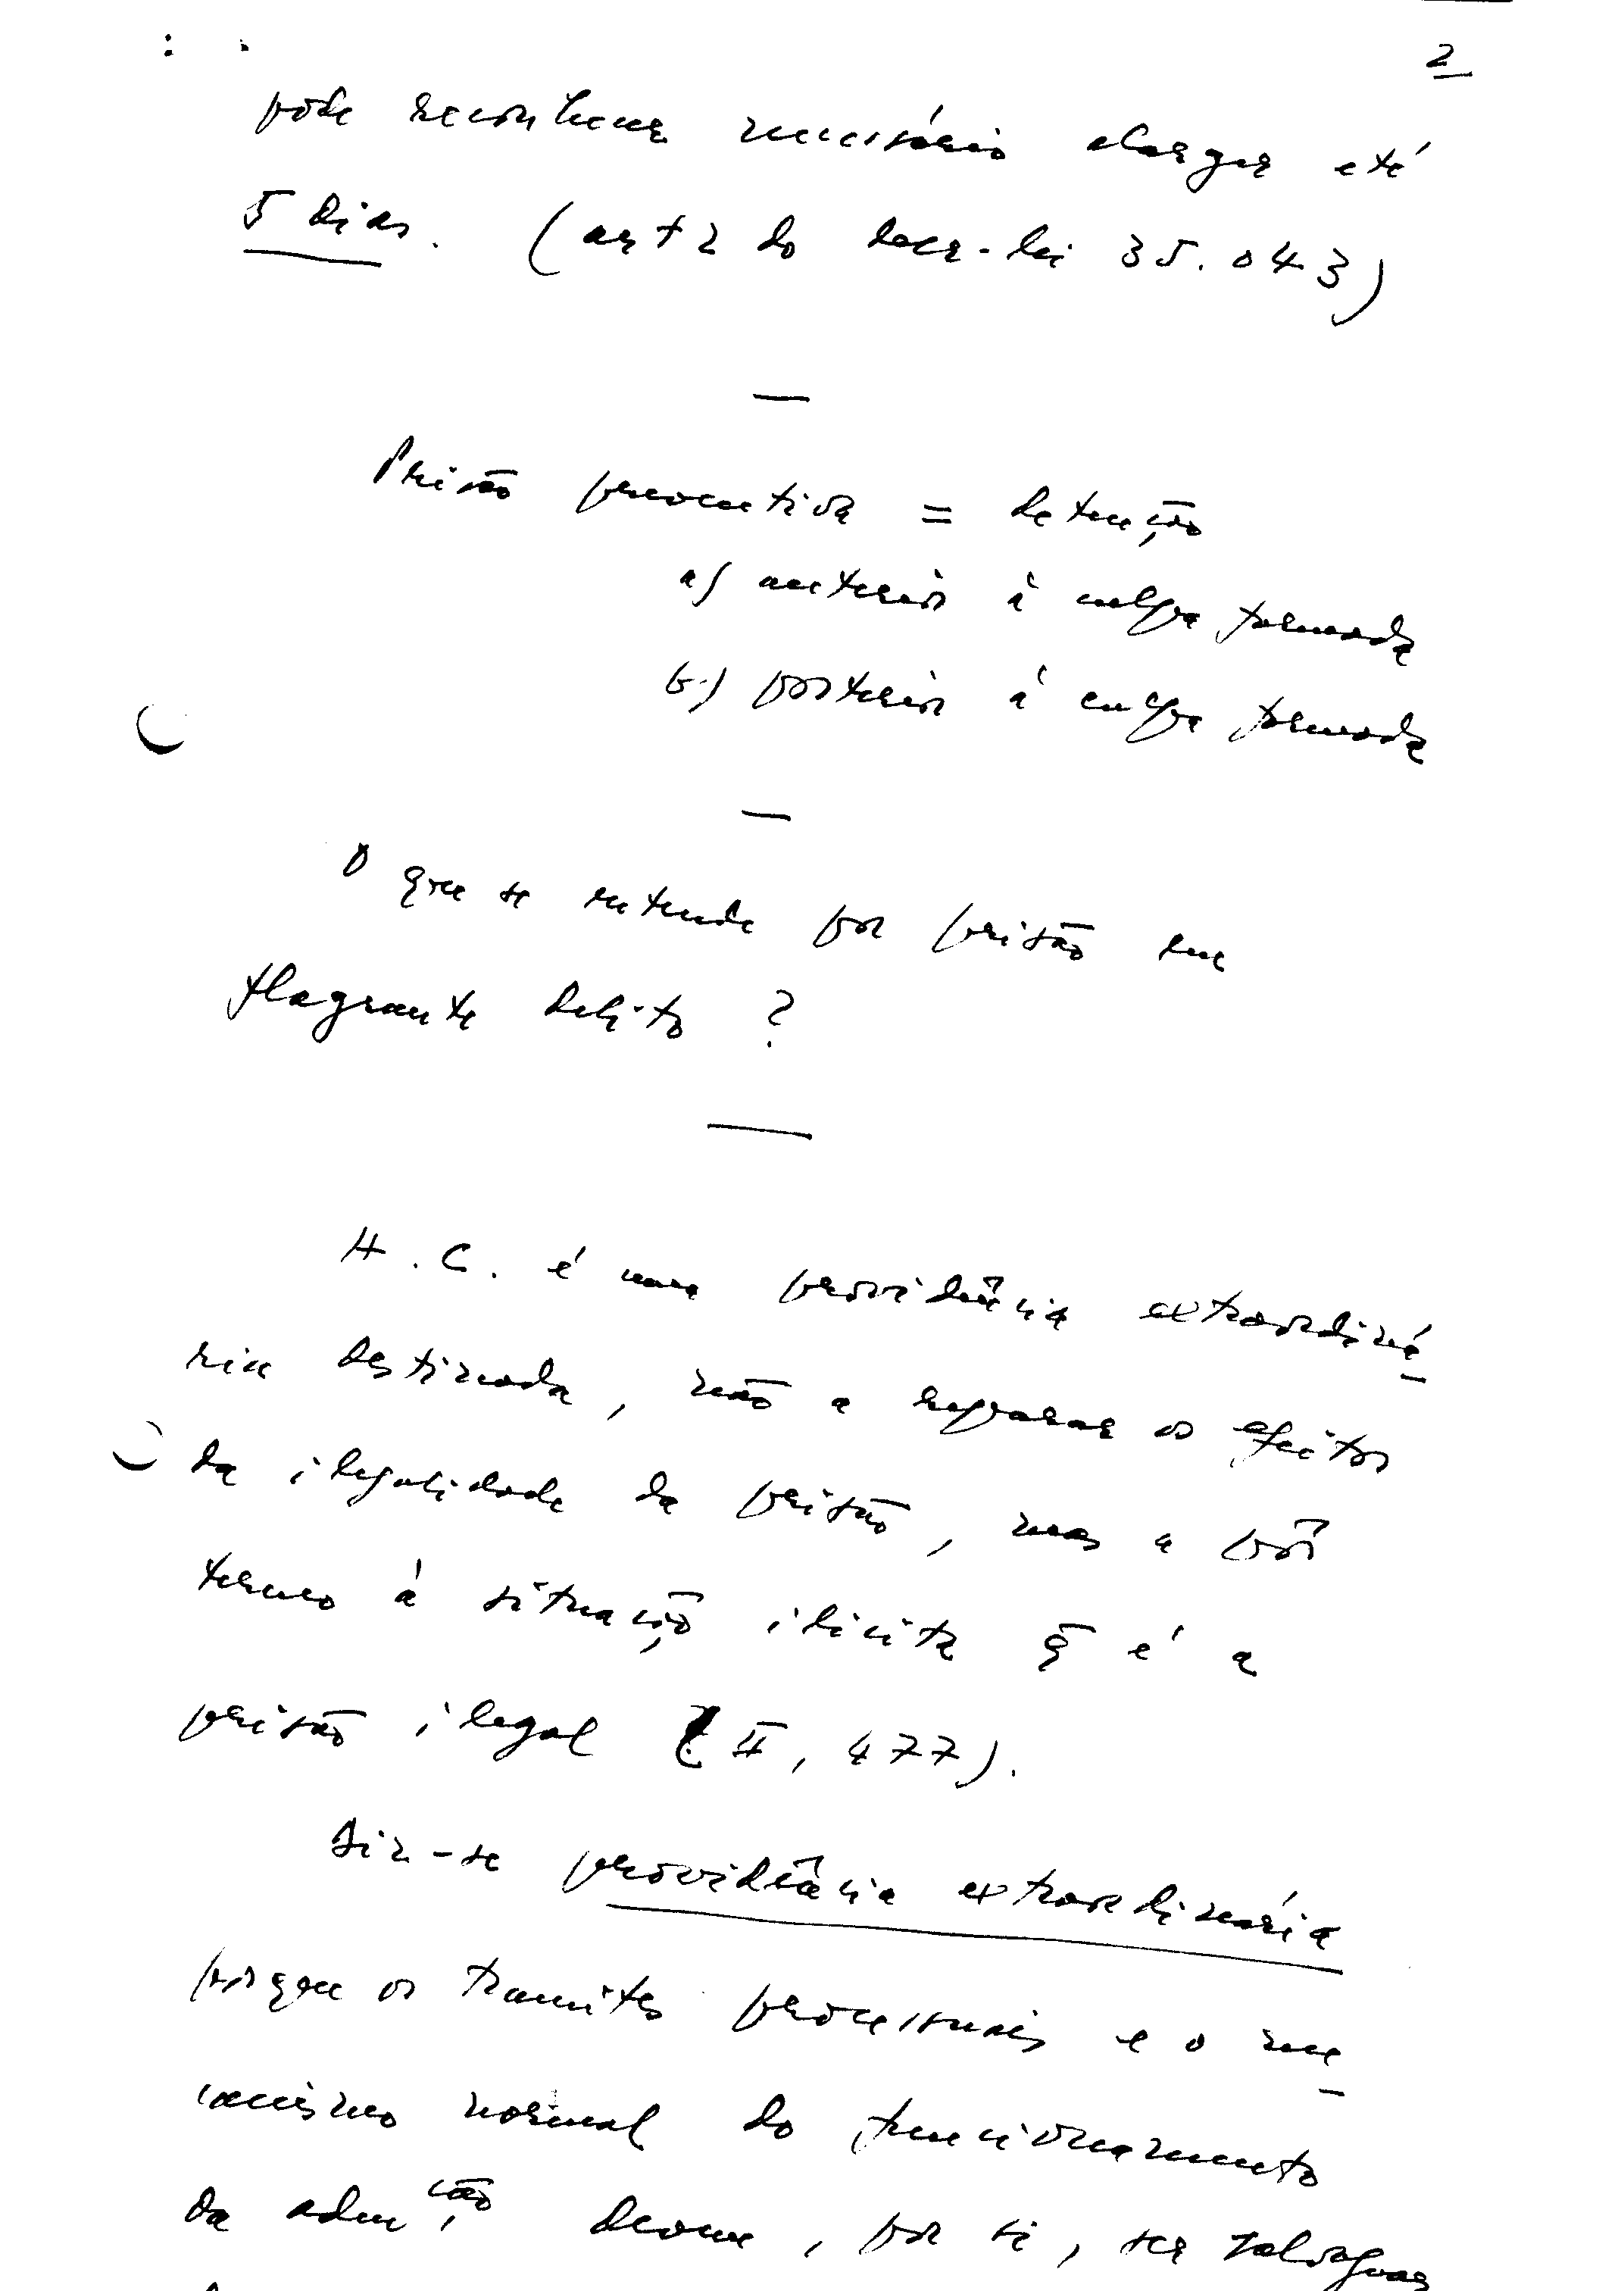 2
pode reconhecer necessário alargar até
5 dias. (art 2 do decr-lei 35.043)
—
Prisão preventiva = detenção
a) anterior à culpa formada
b.) posterior à culpa formada
—
O que se entende por prisão em
flagrante delito ?
—
H.C. é uma providência extraordiná
ria destinada, não a reparar os efeitos
da ilegalidade da prisão, mas a pôr
termo à situação ilicita q̄ é a
prisão ilegal (II, 477).
Diz-se providência extraordinária
porque os tramites processuais e o me
canismo normal do funcionamento
da admção devem, por si, ser salvaguar